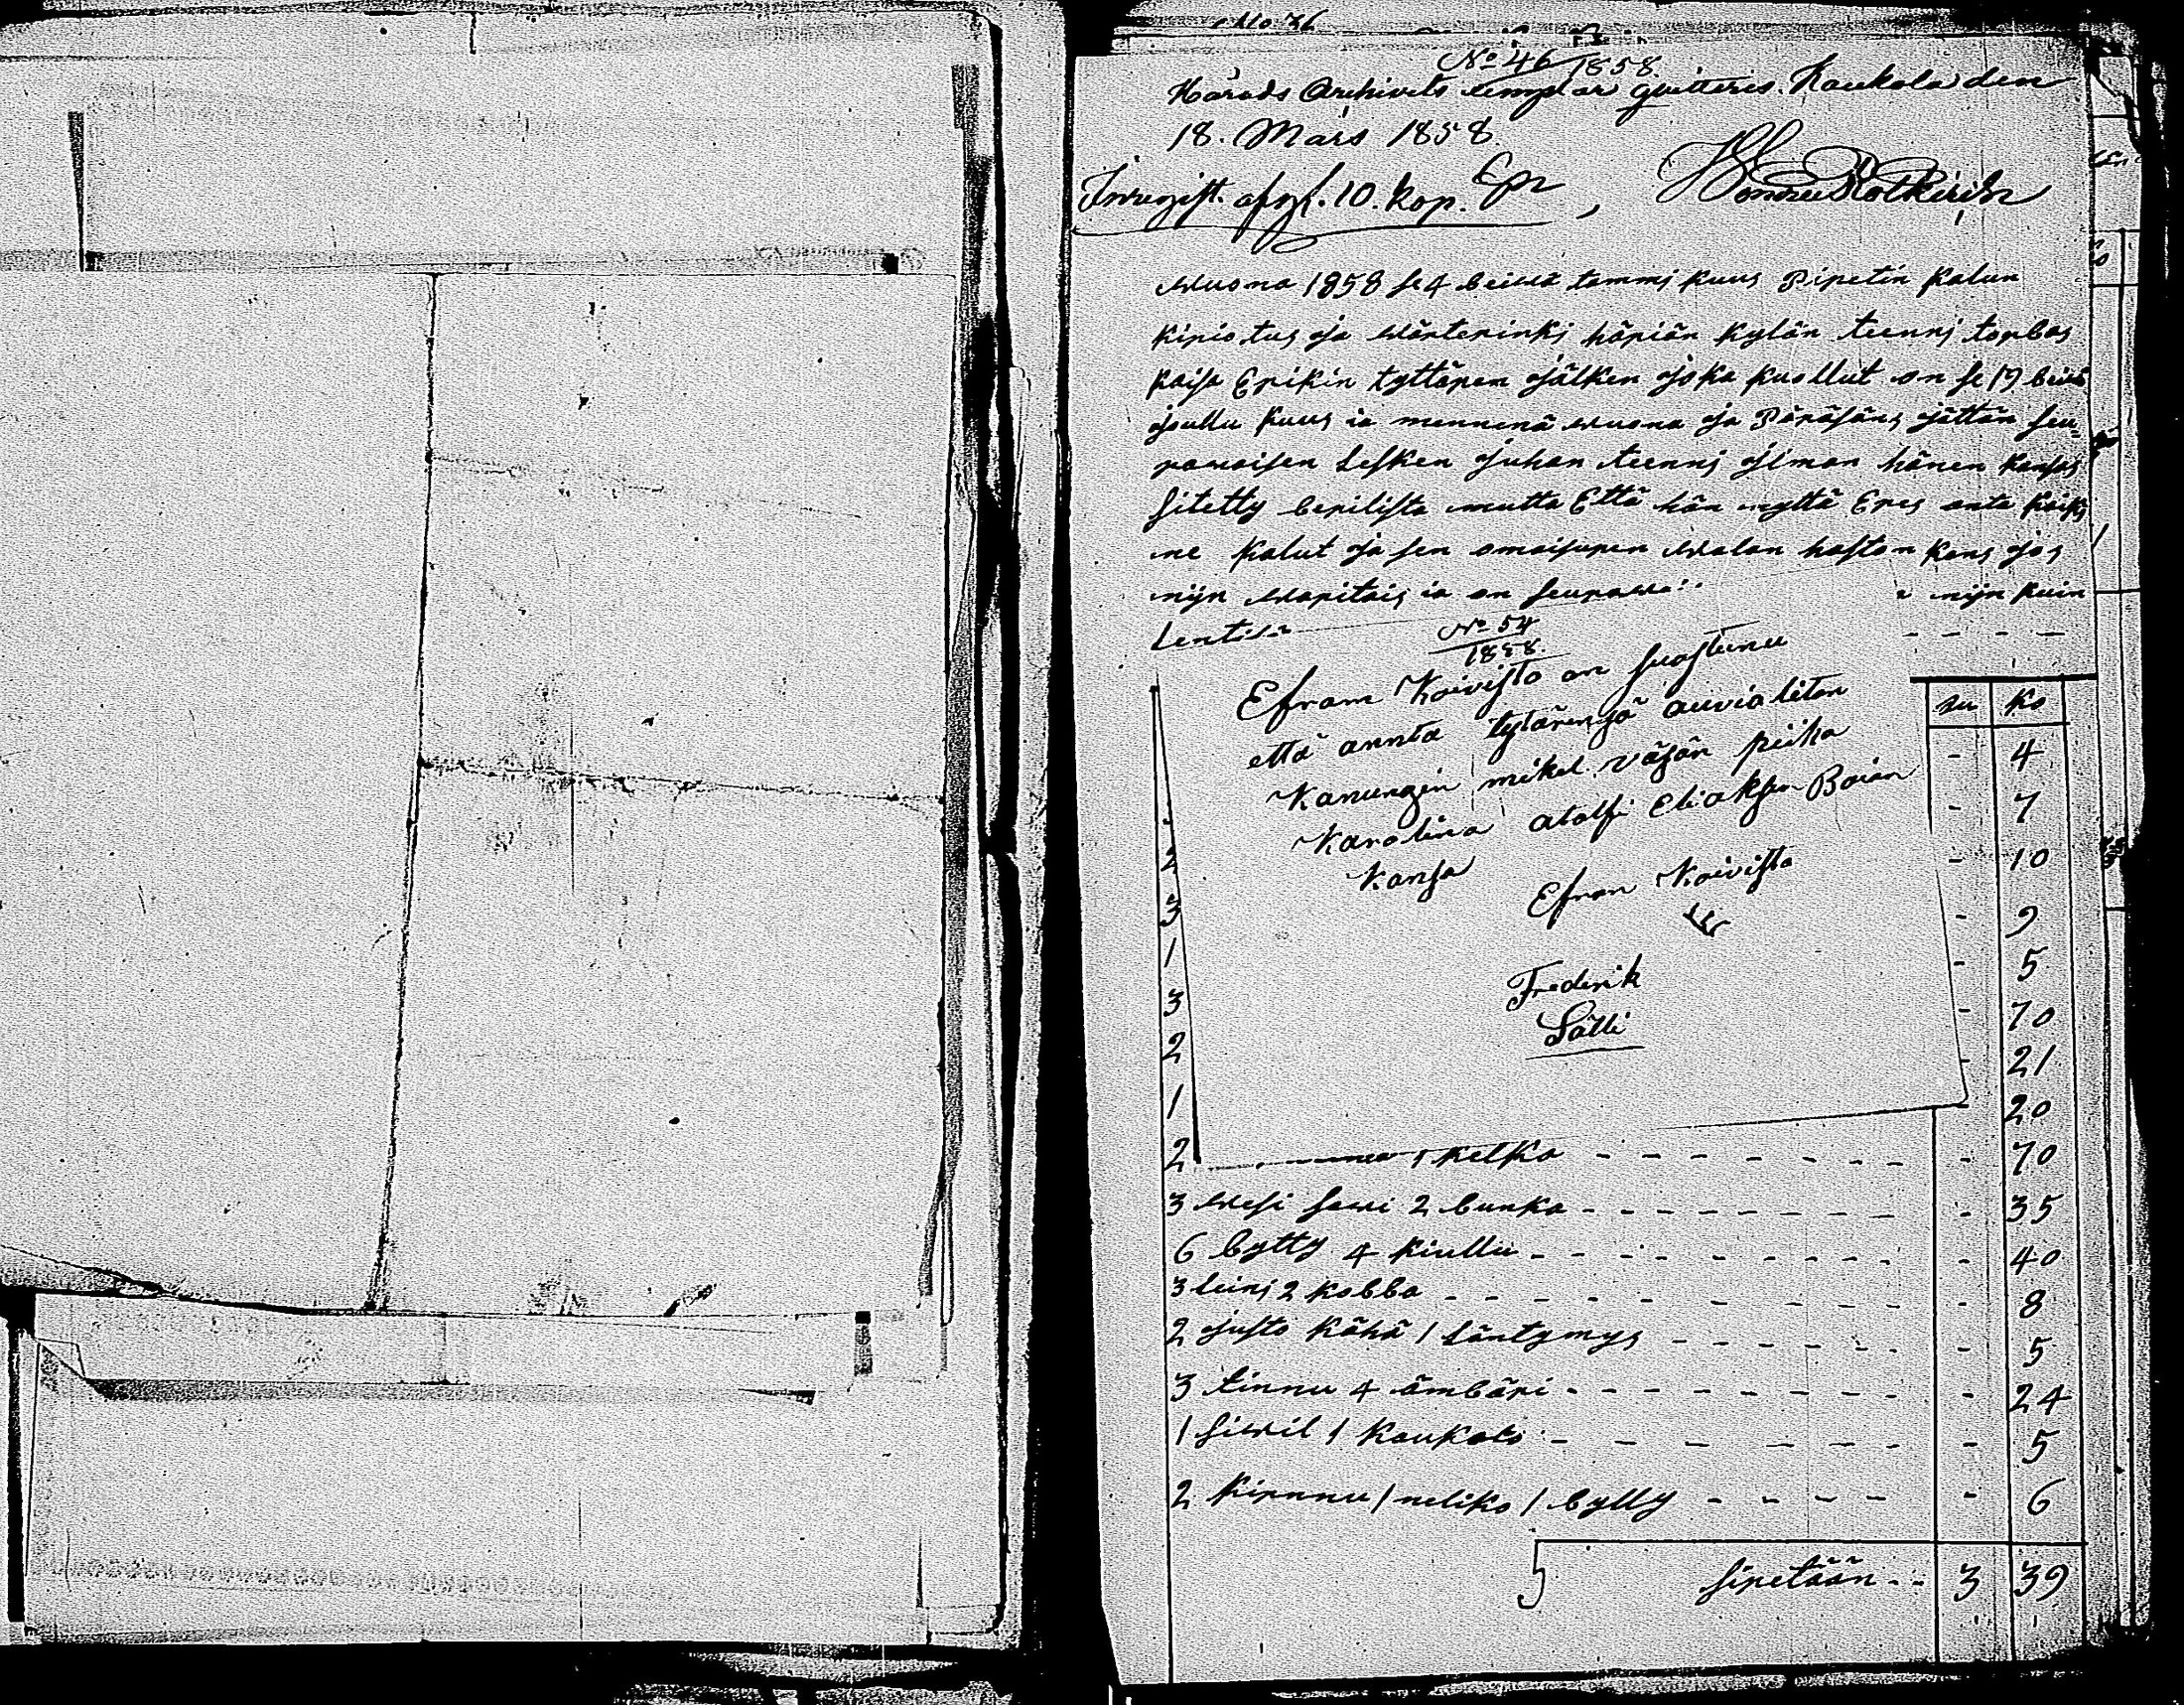 No 36
No 46 1858.
Härads Archivets exemplar quitteres. Kaukola den
18. Mars 1858.
Inregist. afgf. 10. kop.
wuona 1858 se 4 beiwä tammi kuus Pipetin kalun
kirio tus ja wärterinki häriän kylän teenni torbas
kaisa Erikin tyttären jälken joka kuollut on se 19 beiwä
joullu kuus ia mennenä wuona ja Peräsäns jättän seu-
rawaisen Lesken Juhan teenni ilman hänen kansas
sitetty berilista mutta Että hän myttä Eres anta kaiki
ne kalut ja sen omaisuren walan haston kans jos
nijn waritais ia on seurawai nijn kuin
No 54
1858.
Efram Koivisto on suostunu
että annta tytärensä auvioliton
Kanungin mikel väsän piika
Karolina atolfi Eliaksen Boian
Kansa
Efram Koivisto
Frederik
Lätti
ru ko
- 4
- 7
2 - 10
3 - 9
1 - 5
3 - 70
2 - 21
1 - 20
2 1 kelka - 70
3 wesi sawi 2 bunka - 35
6 bytty 4 kiullu - 40
3 leini 2 kobba - 8
2 justo kähä 1 säntymys - 5
3 tinnu 4 ämbäri - 24
1 siwil 1 kaukalo - 5
2 kirnnu 1 neliko 1 bytty - 6
siretään - - 3 39